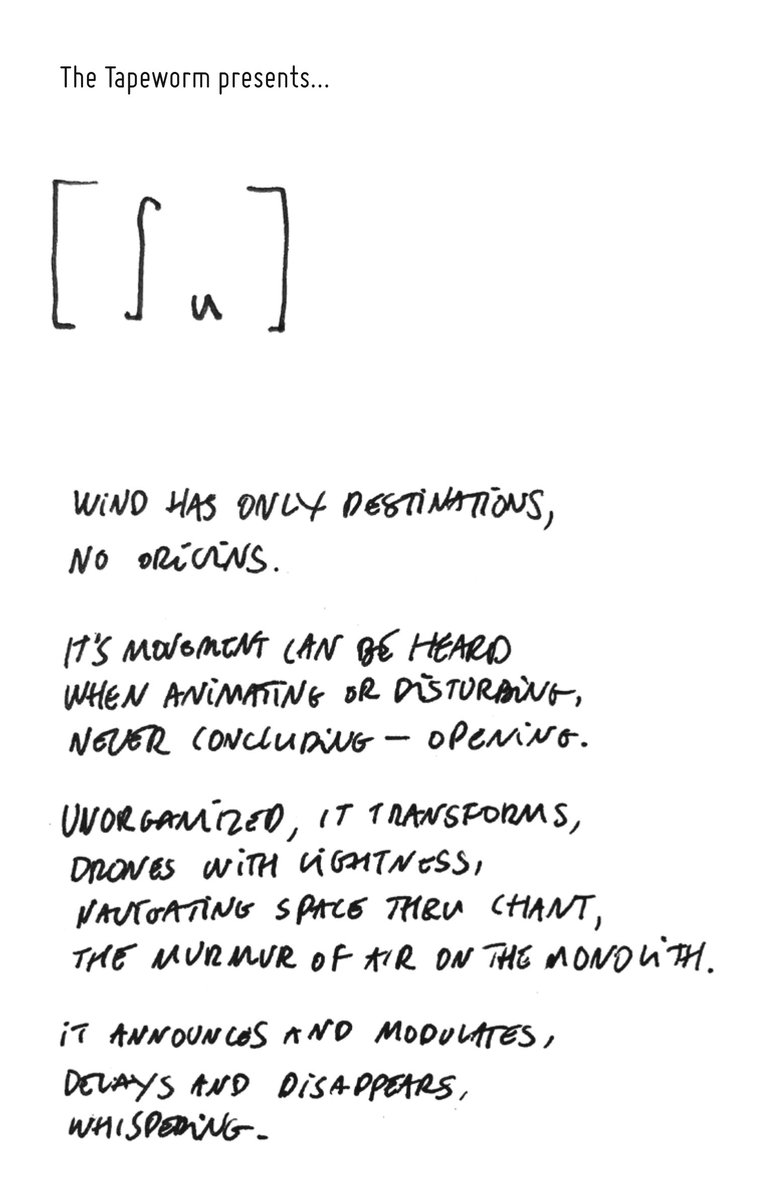 The Tapeworm presents...
[ ∫ u ]
WIND HAS ONLY DESTINATIONS,
NO ORIGINS.
IT'S MOVEMENT CAN BE HEARD
WHEN ANIMATING OR DISTURBING,
NEVER CONCLUDING — OPENING.
UNORGANIZED, IT TRANSFORMS,
DRONES WITH LIGHTNESS,
NAVIGATING SPACE THRU CHANT,
THE MURMUR OF AIR ON THE MONOLITH.
IT ANNOUNCES AND MODULATES,
DELAYS AND DISAPPEARS,
WHISPERING.